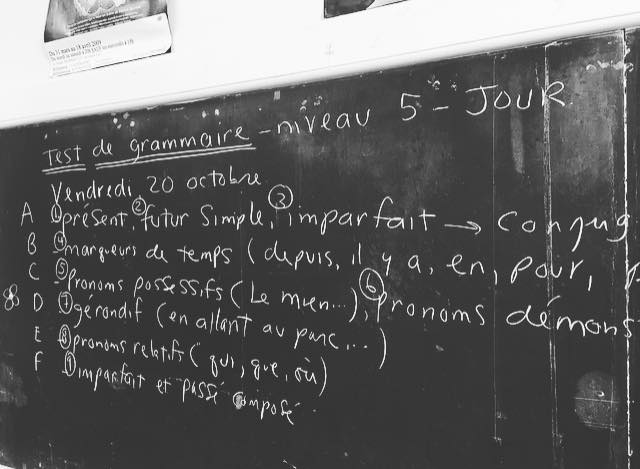 Du 31 mars au 18 avril 2009
Test de grammaire - niveau 5 - JOUR
Vendredi 20 octobre
A ① présent, ② futur simple, ③ imparfait → conjug
B ④ marqueurs de temps (depuis, il y a, en, pour, p
C ⑤ pronoms possessifs (Le mien...), ⑥ pronoms démons
D ⑦ gérondif (en allant au parc...)
E ⑧ pronoms relatifs (qui, que, où)
F ⑨ imparfait et passé composé.